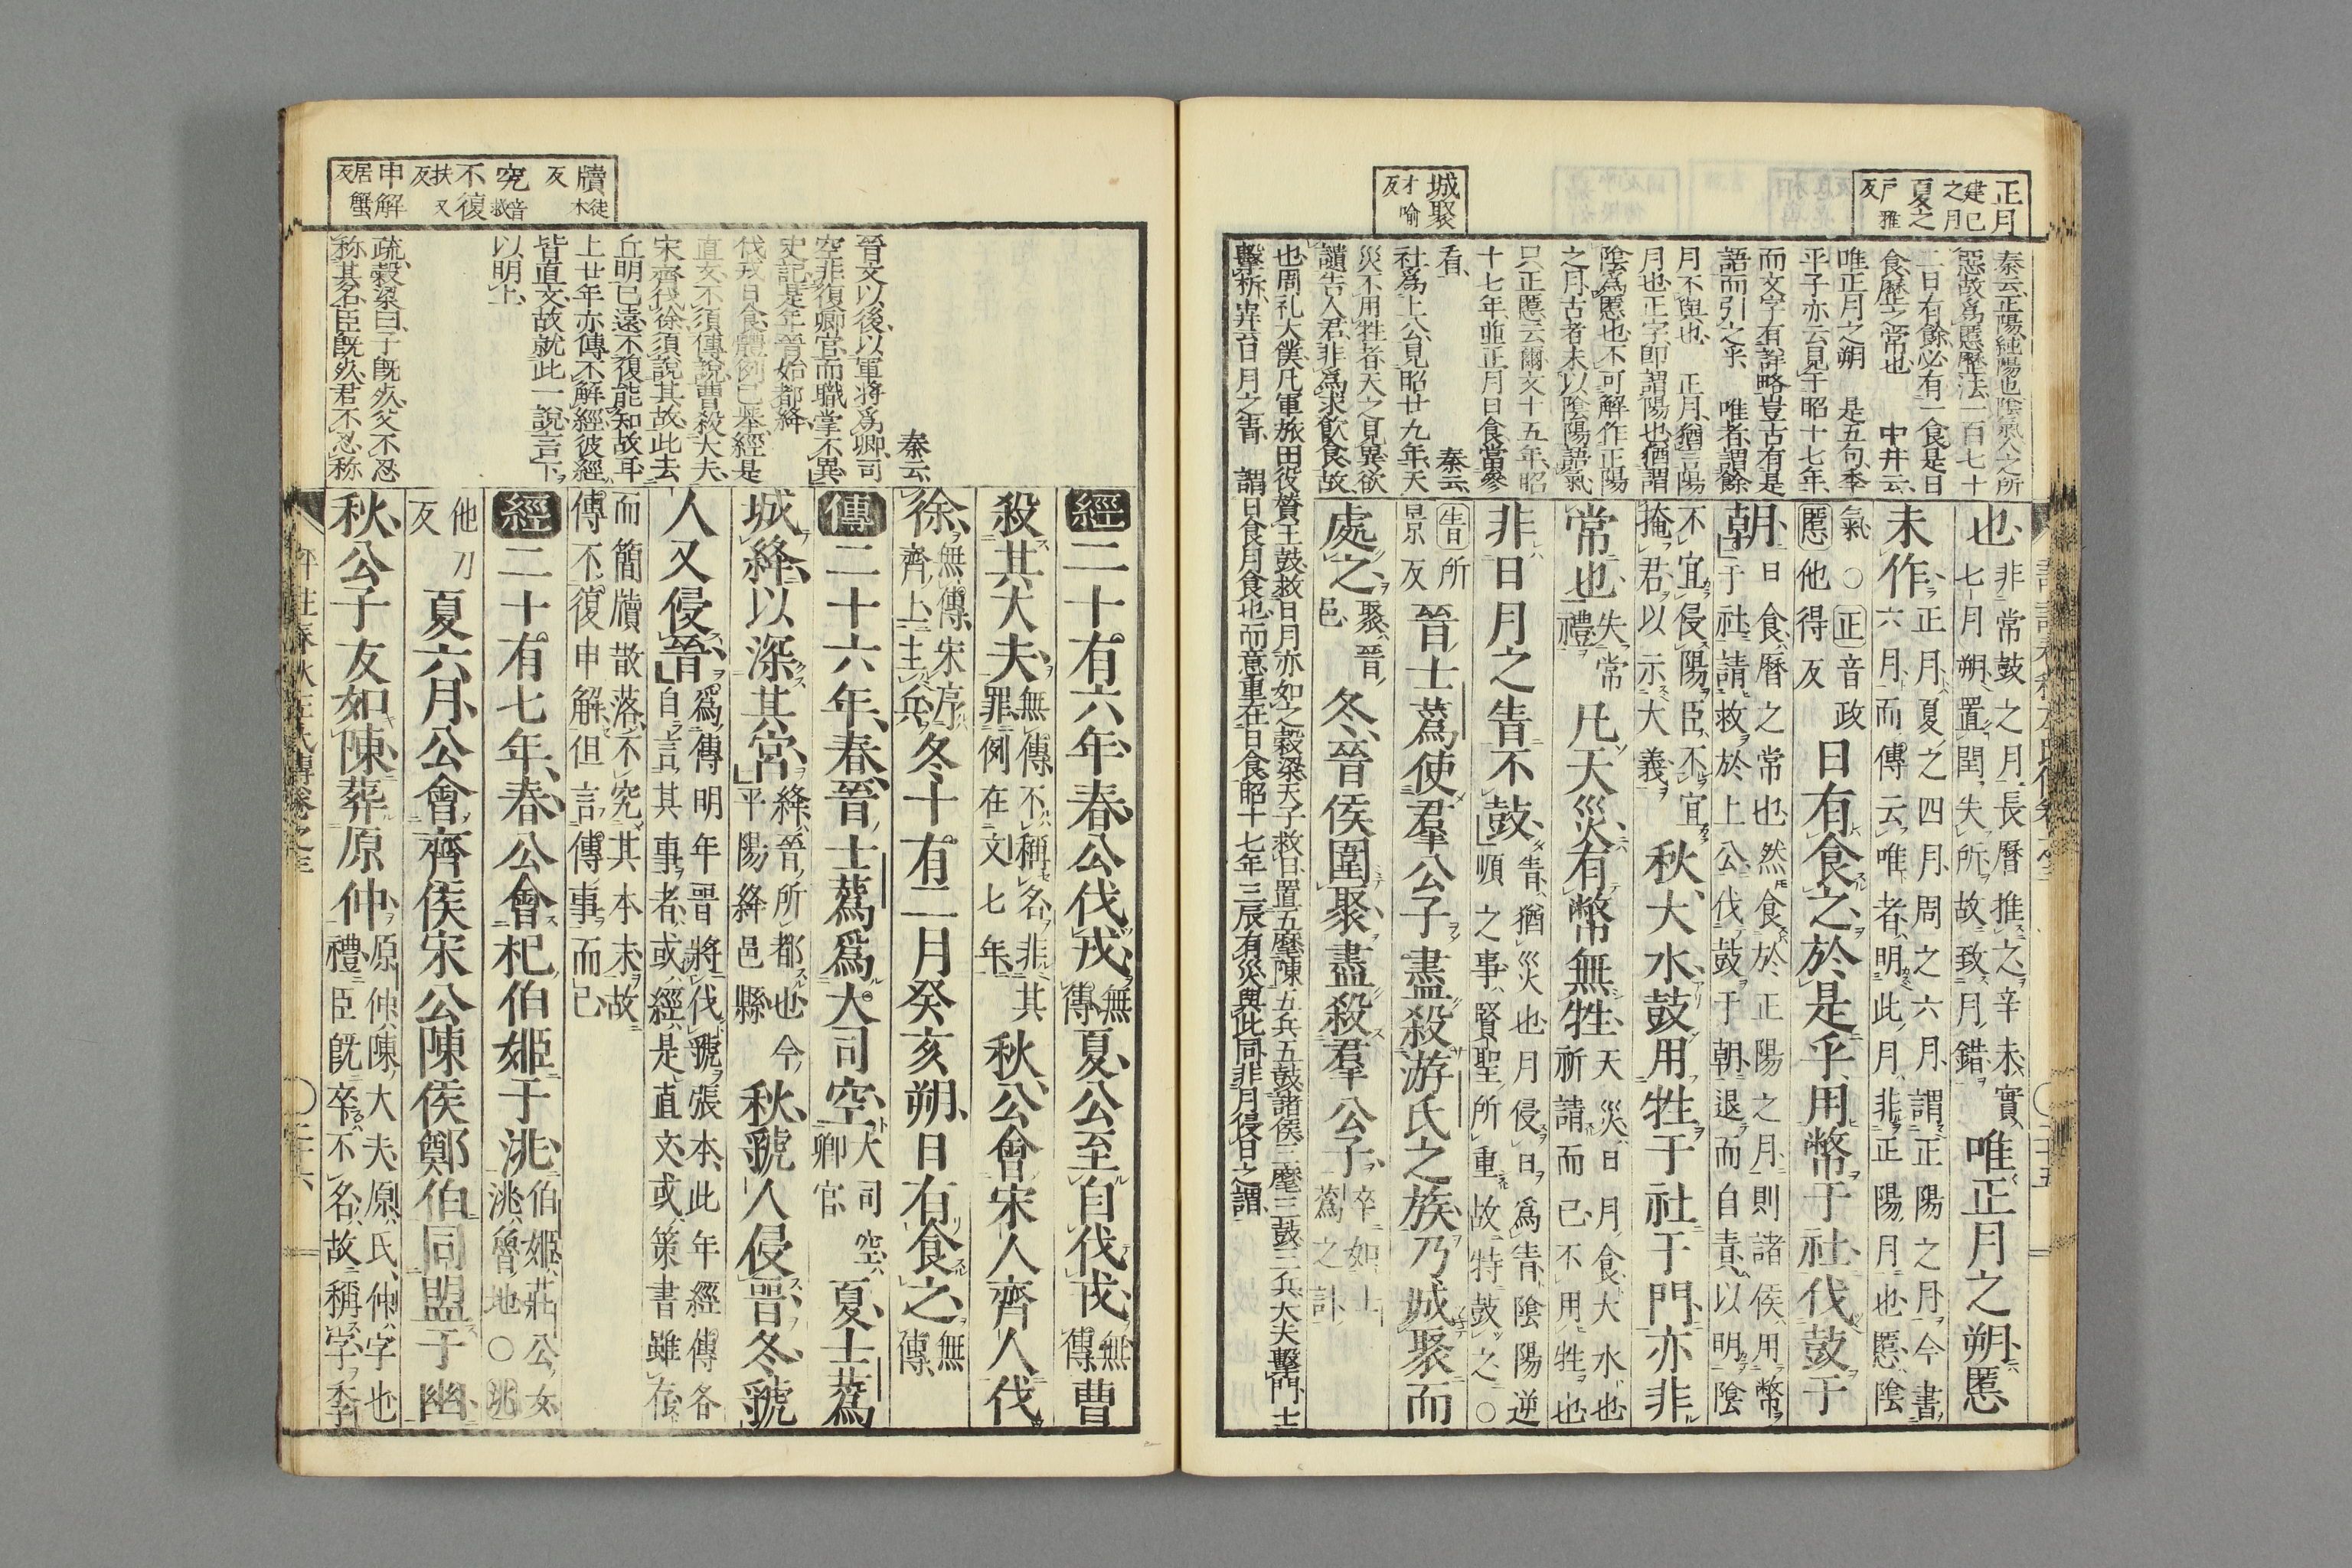 正月建巳之月
夏之戸雅反
城聚才喻反
秦云正陽純陽也陰氣人之所
慝故爲慝歷法一百七十
三日有餘必有一食是日
食歷之常也 中井云
唯正月之朔 是五句季
平子亦云見于昭十七年
而文字有詳略豈古有是
語而引之乎 唯者謂餘
月不與也 正月猶言陽
月也正字即謂陽也猶謂
陰爲慝也不可解作正陽
之月古者未以陰陽語氣
只正慝云爾文十五年昭
十七年並正月日食當參
看 秦云
社爲上公見昭廿九年天
災不用牲者天之見異欲
譴告人君非爲求飲食故
也周礼大僕凡軍旅田役贊王鼓救日月亦如之穀梁天子救日置五麾陳五兵五鼓諸侯三麾三鼓三兵大夫擊門士
擊柝 弁云日月之眚 謂日食月食也而意重在日食昭十七年三辰有災與此同非月侵日之謂
也非常鼓之月長曆推之辛未實七月朔置閏失所故致月錯唯正月之朔慝
未作正月夏之四月周之六月謂正陽之月今書六月而傳云唯者明此月非正陽月也慝陰
氣○正音政慝他得反日有食之於是乎用幣于社伐鼓于
朝日食曆之常也然食於正陽之月則諸侯用幣于社請救於上公伐鼓于朝退而自責以明陰
不宜侵陽臣不宜掩君以示大義秋大水鼓用牲于社于門亦非
常也失常禮凡天災有幣無牲天災日月食大水也祈請而已不用牲也
非日月之眚不鼓眚猶災也月侵日爲眚陰陽逆順之事賢聖所重故特鼓之○
眚所景反晉士蔿使羣公子盡殺游氏之族乃城聚而
處之聚晉邑冬晉侯圍聚盡殺羣公子卒如士蔿之計
牘徒木反
究音救
不復扶又反
申解居蟹反
秦云
晉文以後以軍將爲卿司
空非復卿官而職掌不異
史記是年晉始都絳
伐戎日食體例已舉經是
直文不須傳說曹殺大夫
宋齊伐徐須說其故此去
丘明已遠不復能知故耳
上廿年亦傳不解經彼經
皆直文故就此一說言下
以明上
疏穀梁曰子既死父不忍
称其名臣既死君不忍称
經二十有六年春公伐戎無傳夏公至自伐戎無傳曹
殺其大夫無傳不稱名非其罪例在文七年秋公會宋人齊人伐
徐無傳宋序齊上主兵冬十有二月癸亥朔日有食之無傳
傳二十六年春晉士蔿爲大司空大司空卿官夏士蔿
城絳以深其宮絳晉所都也今平陽絳邑縣秋虢人侵晉冬虢
人又侵晉爲傳明年晉將伐虢張本此年經傳各自言其事者或經是直文或策書雖存
而簡牘散落不究其本末故傳不復申解但言傳事而已
經二十有七年春公會杞伯姬于洮伯姬莊公女洮魯地○洮
他刀反夏六月公會齊侯宋公陳侯鄭伯同盟于幽
秋公子友如陳葬原仲原仲陳大夫原氏仲字也禮臣既卒不名故稱字季